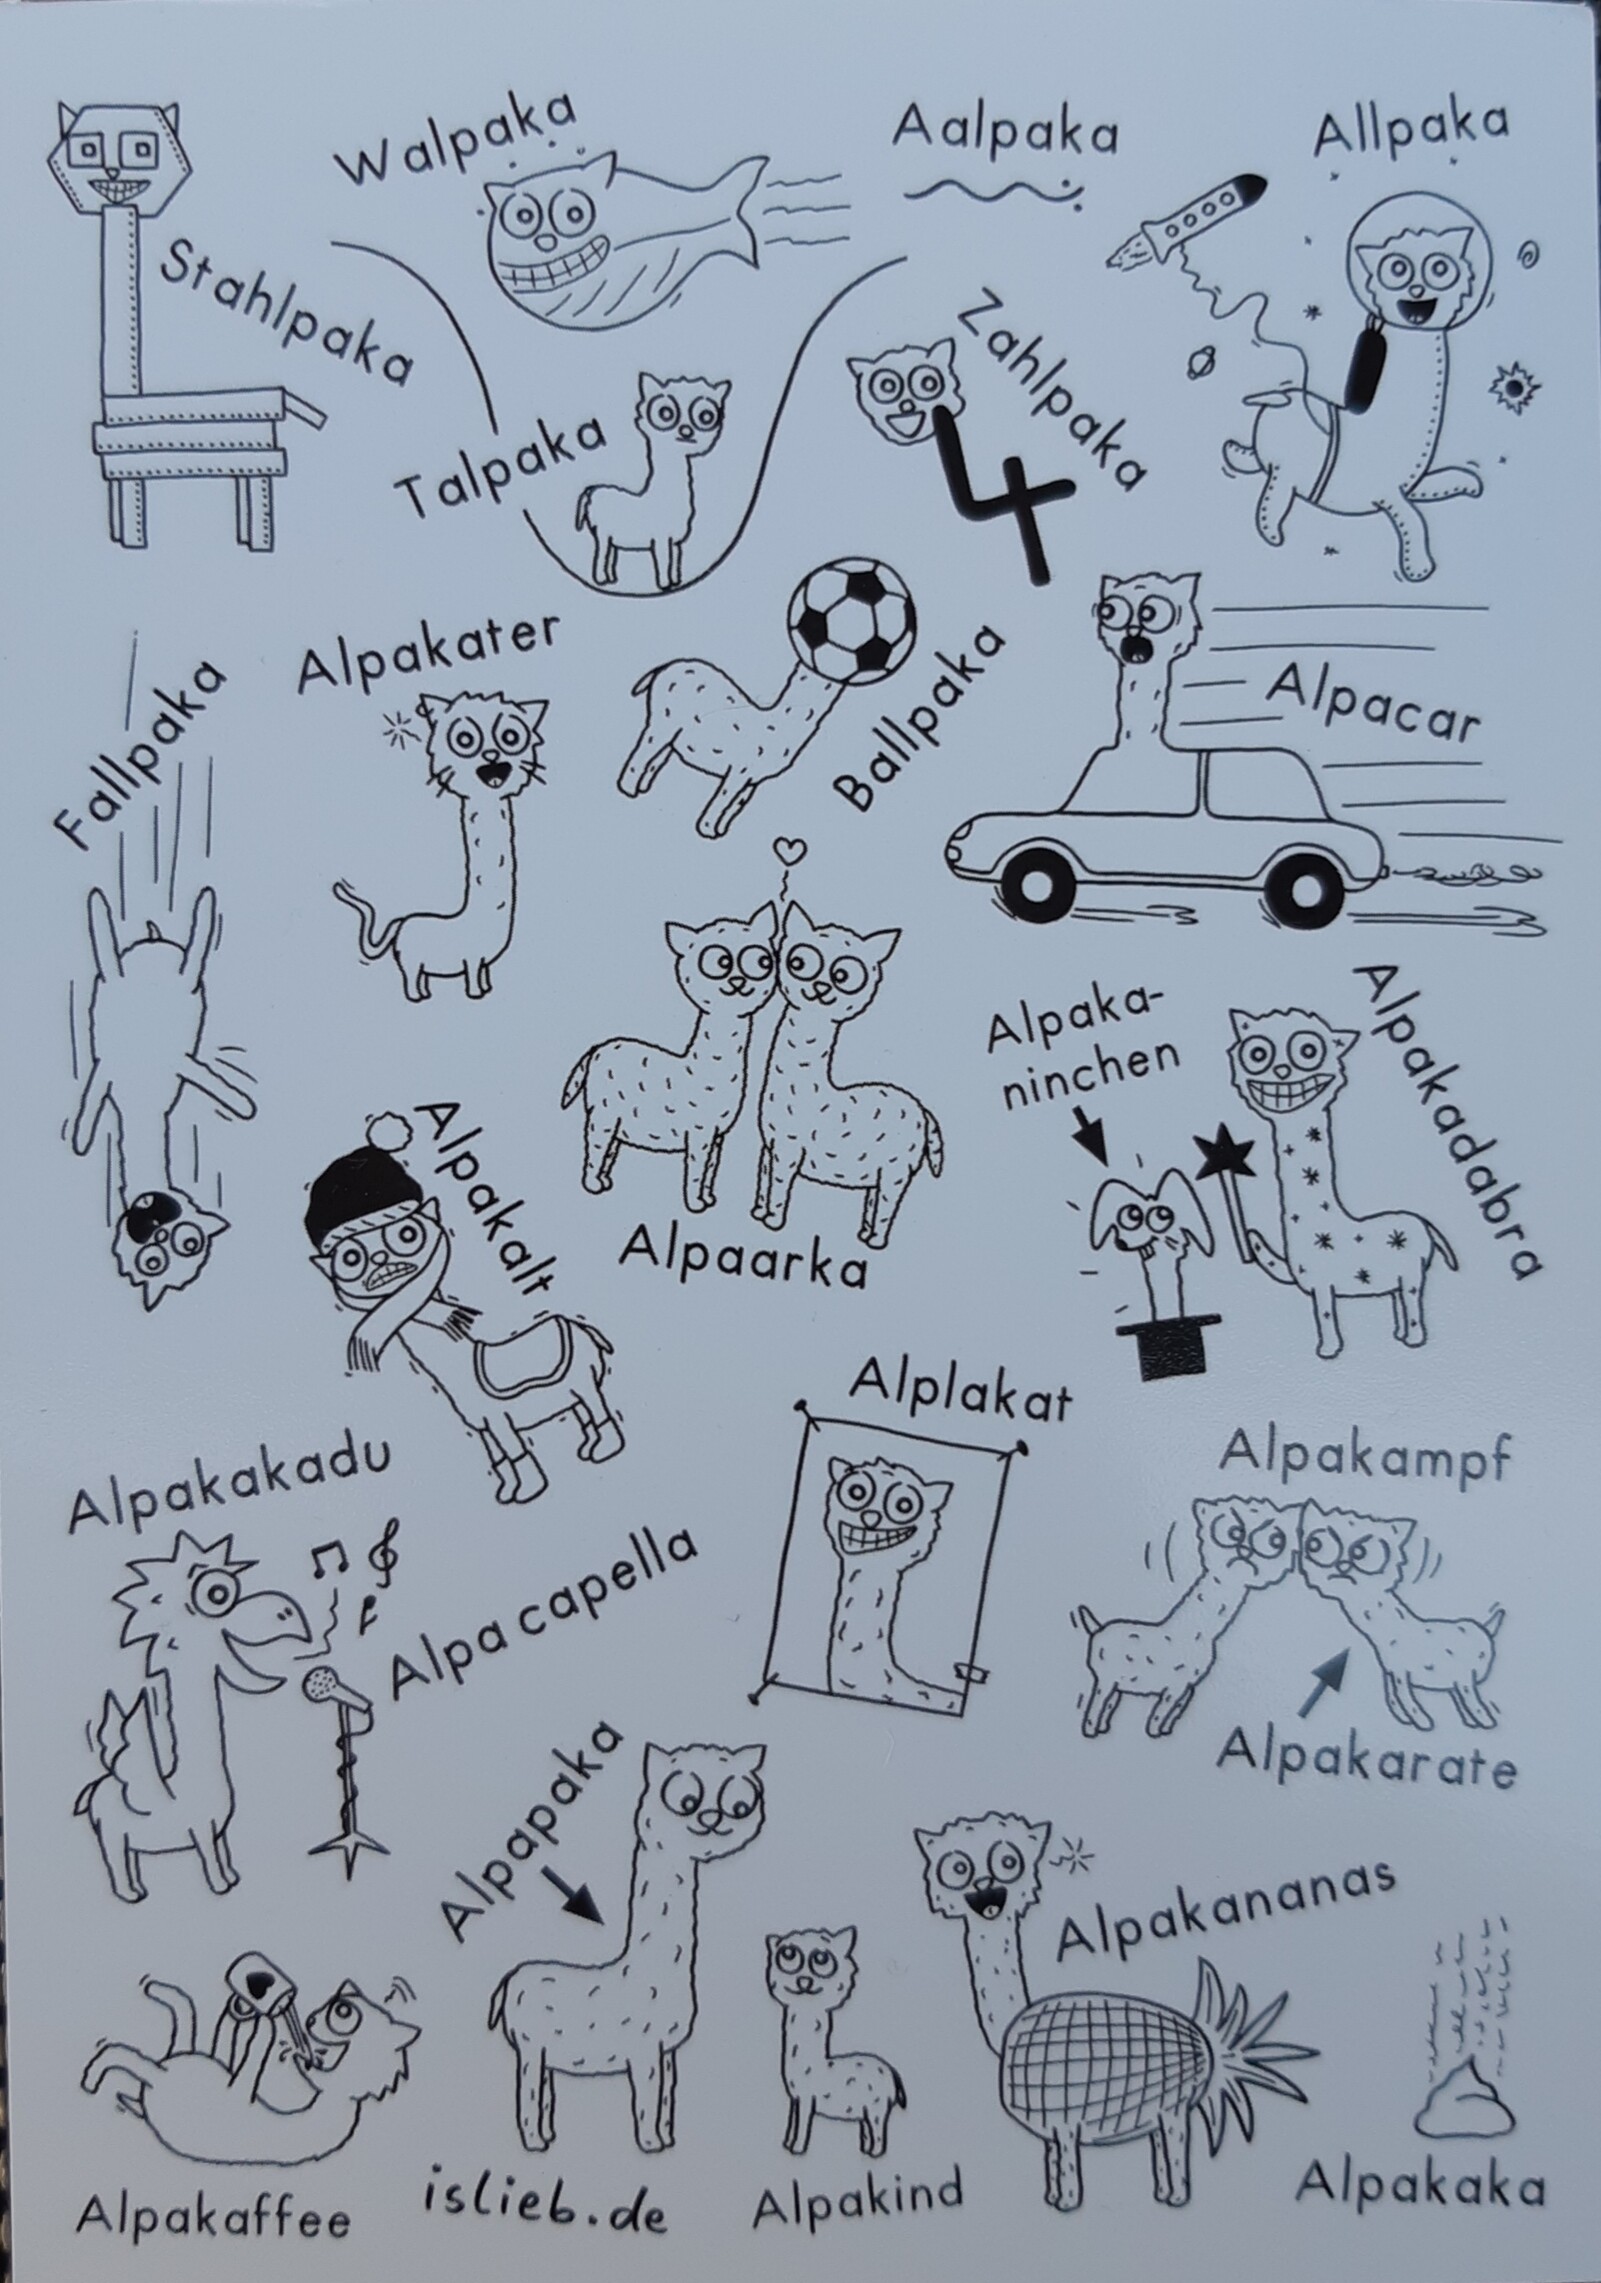 Walpaka
Aalpaka
Allpaka
Stahlpaka
Talpaka
Zahlpaka
4
Fallpaka
Alpakater
Ballpaka
Alpacar
Alpaka-
ninchen
Alpakadabra
Alpakalt
Alpaarka
Alplakat
Alpakampf
Alpakakadu
Alpacapella
Alpakarate
Alpapaka
Alpakananas
Alpakaffee
islieb.de
Alpakind
Alpakaka